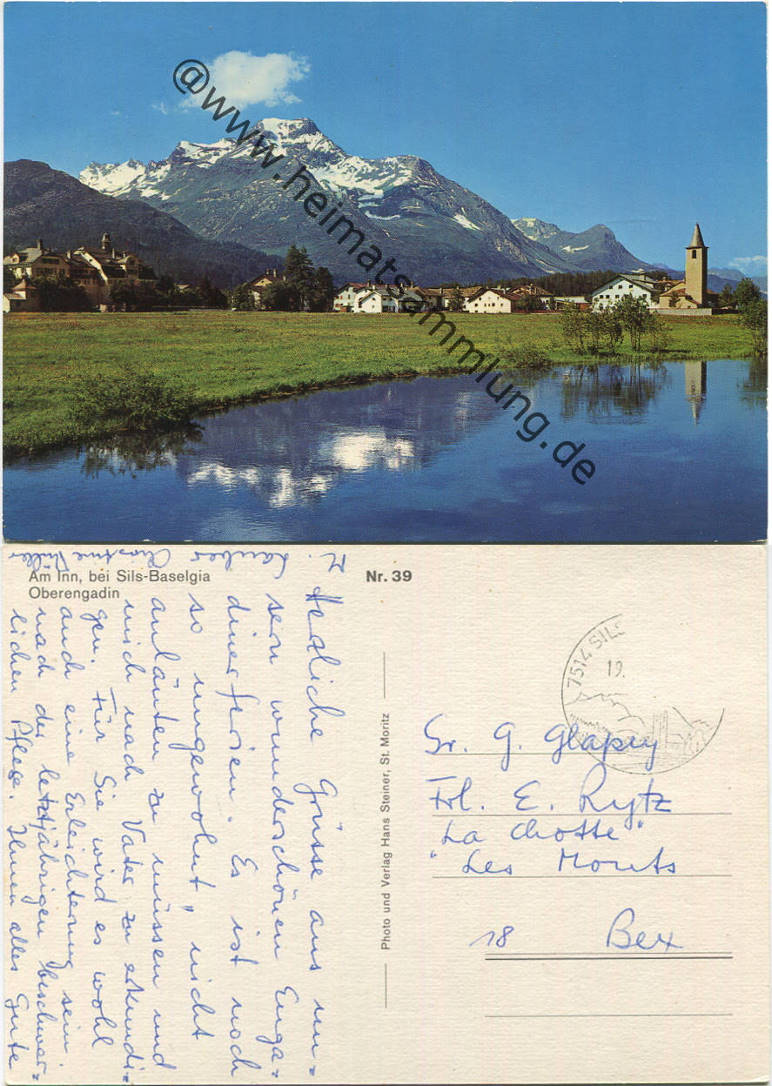 @www.heimatsammlung.de
Am Inn, bei Sils-Baselgia
Oberengadin
Nr. 39
Herzliche Grüsse aus un-
sern wunderschönen Enga-
dinerferien. Es ist noch
so ungewohnt, nicht
anläuten zu müssen und
mich nach Vater zu erkundi-
gen. Für Sie wird es wohl
auch eine Erleichterung sein
nach der letztjährigen beschwer-
lichen Pflege. Ihnen alles Gute
Photo und Verlag Hans Steiner, St. Moritz
7514 SILS
19.
Sr. G. Glapey
Frl. E. Rytz
"La Chotte"
"Les Monts
18 Bex